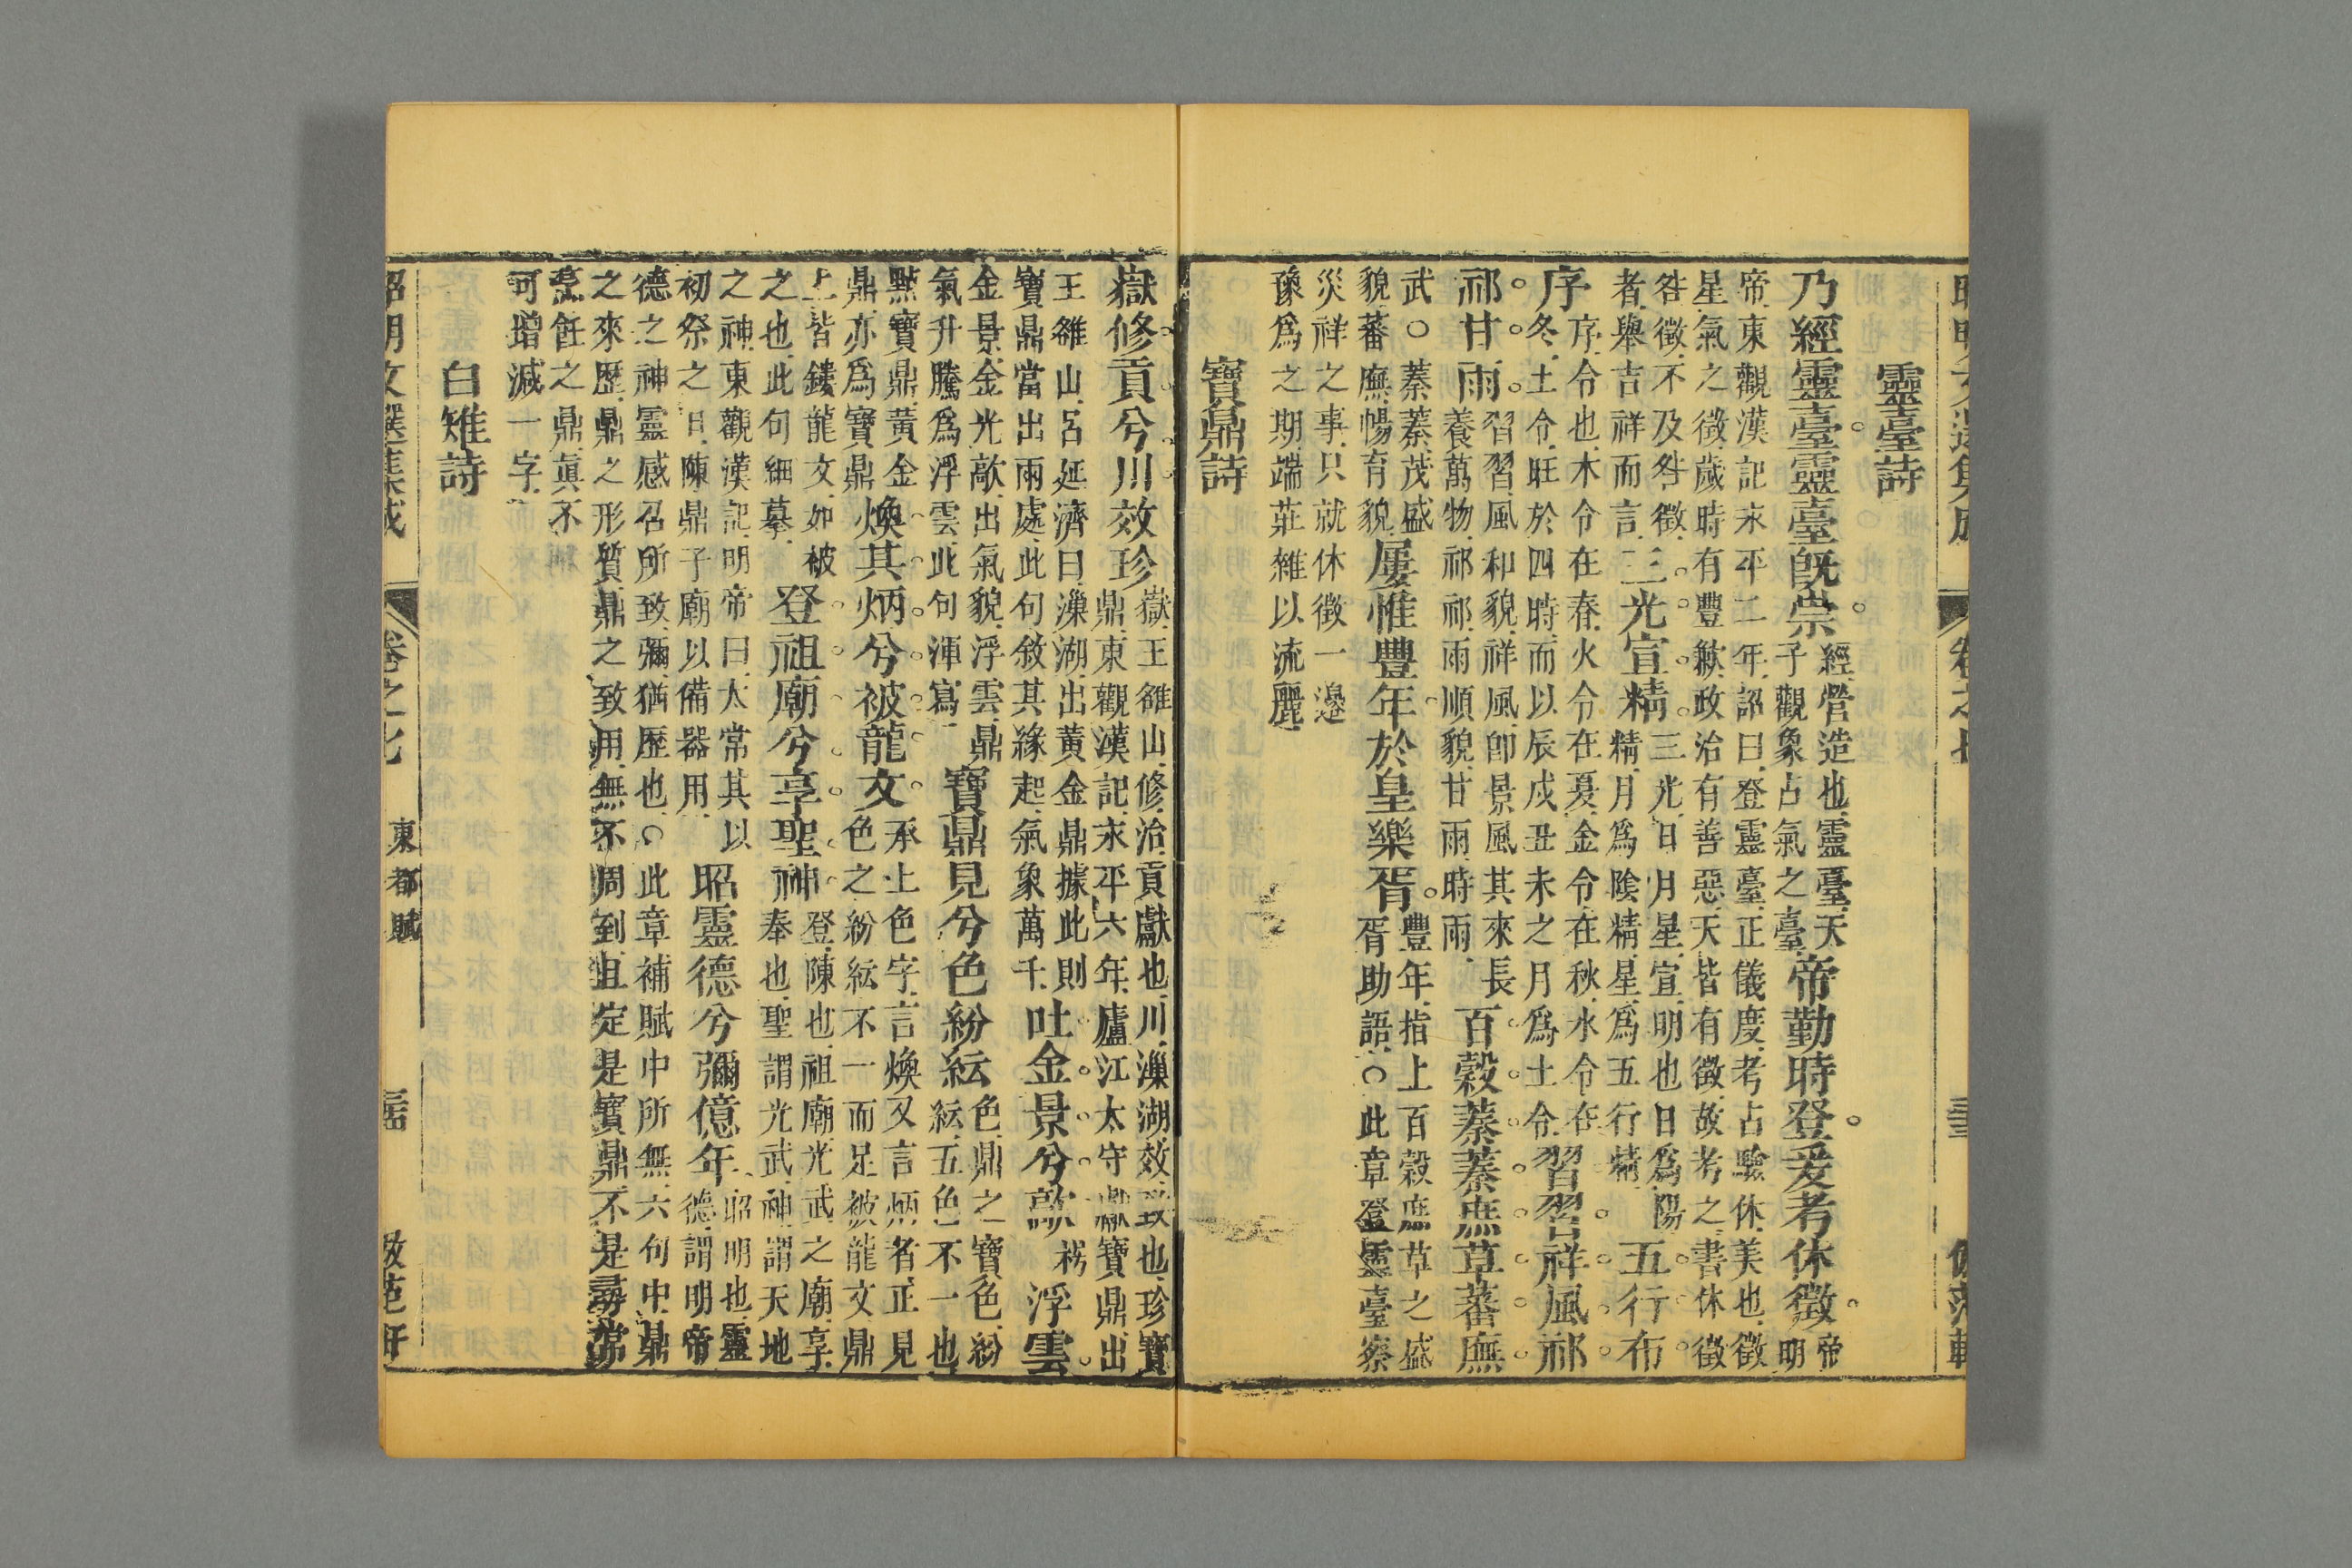 靈臺詩
乃經靈臺靈臺旣崇經營造也靈臺天子觀象占氣之臺帝勤時登爰考休徵帝明
帝東觀漢記永平二年詔曰登靈臺正儀度考占驗休美也徵
星氣之徵歲時有豐歉政治有善惡天皆有徵故考之書休徵
咎徵不及咎徵者舉吉祥而言三光宣精三光日月星宣明也日爲陽精月爲陰精星爲五行精五行布
序序令也木令在春火令在夏金令在秋水令在冬土令旺於四時而以辰戌丑未之月爲土令習習祥風祁
祁甘雨習習風和貌祥風卽景風其來長養萬物祁祁雨順貌甘雨時雨百穀蓁蓁庶草蕃廡
武○蓁蓁茂盛貌蕃廡暢育貌屢惟豐年於皇樂胥豐年指上百穀庶草之盛胥助語○此章登靈臺察
災祥之事只就休徵一邊
豫爲之期端莊雜以流麗
寶鼎詩
嶽修貢兮川效珍嶽王雒山修治貢獻也川漅湖效致也珍寶鼎東觀漢記永平六年廬江太守獻寶鼎出
王雒山呂延濟曰漅湖出黃金鼎據此則寶鼎當出兩處此句敘其緣起氣象萬千吐金景兮歊枵浮雲
金景金光歊出氣貌浮雲鼎氣升騰爲浮雲此句渾寫寶鼎見兮色紛紜色鼎之寶色紛紜五色不一也
點寶鼎黃金鼎亦爲寶鼎煥其炳兮被龍文承上色字言煥又言炳者正見色之紛紜不一而足被龍文鼎
上皆鏤龍文如被之也此句細摹登祖廟兮享聖神登陳也祖廟光武之廟享奉也聖謂光武神謂天地
之神東觀漢記明帝曰太常其以初祭之日陳鼎于廟以備器用昭靈德兮彌億年昭明也靈德謂明帝
德之神靈感召所致彌猶歷也○此章補賦中所無六句中鼎
之來歷鼎之形質鼎之致用無不周到且定是寶鼎不是尋常
烹飪之鼎眞不
可增減一字
白雉詩
昭明文選集成
卷之七
東都賦